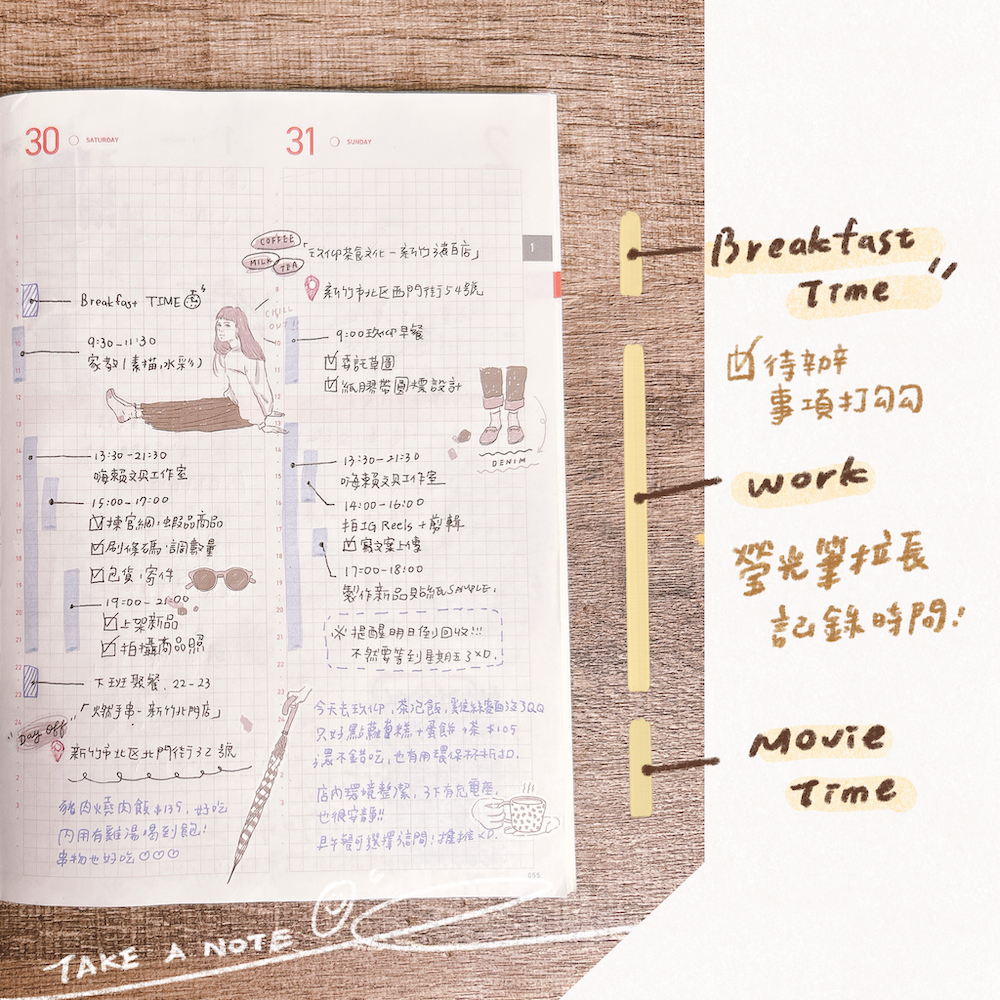 30 SATURDAY
Breakfast TIME
9:30-11:30
家教(素描,水彩)
CHILL
OUT
13:30-21:30
嗨賴文具工作室
15:00-17:00
揀官網,蝦品商品
刷條碼,調數量
包貨,寄件
19:00-21:00
上架新品
拍攝商品照
下班聚餐, 22-23
「燃手串-新竹北門店」
"Day Off"
新竹市北区北門街32號
豬肉燒肉飯$135, 好吃
內用有雞湯喝到飽!
串物也好吃♡♡♡
31 SUNDAY
COFFEE
MILK TEA
「玖仰茶食文化-新竹湳百店」
新竹市北区西門街54號
9:00玖仰早餐
委託草圖
紙膠帶圖標設計
DENIM
13:30-21:30
嗨賴文具工作室
14:00-16:00
拍IG Reels+剪輯
寫文案上傳
17:00-18:00
製作新品貼紙SAMPLE.
※提醒明日倒回收!!!
不然要等到星期五了XD.
今天去玖仰, 茶泡飯, 雞絲麵沒了QQ
只好點蘿蔔糕+蛋餅+茶 $105
還不錯吃, 也有用環保杯折扣.
店內環境整潔, 3F有充電座,
也很安靜!!
早午餐可選擇這間!推推XD.
055
1
TAKE A NOTE
Breakfast
TIME
待辦
事項打勾勾
Work
螢光筆拉長
記錄時間!
Movie
Time